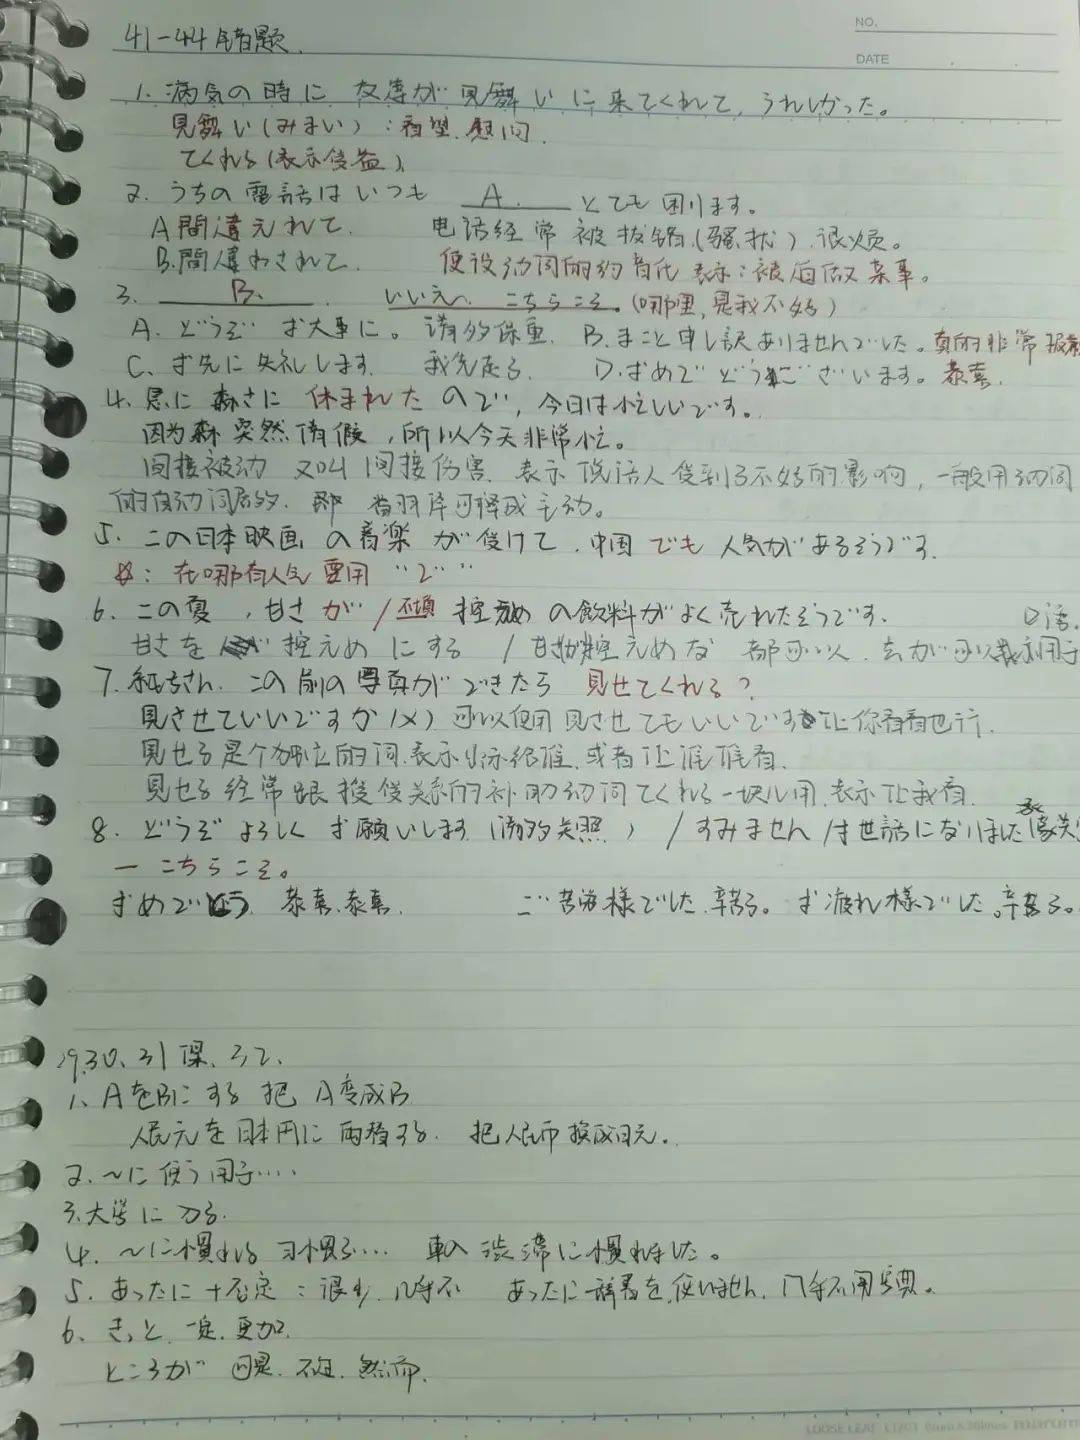 NO.
DATE
41-44错题.
1. 病気の時に 友達が見舞いに来てくれて、うれしかった。
見舞い(みまい):看望.慰问.
てくれる(表示受益).
2. うちの電話はいつも A. とても困ります。
A間違えれて. 电话经常被拨错(骚扰).很烦。
B.間違わされて. 使役动词的约音化 表示:被迫做某事。
3. B. いいえ、こちらこそ。(哪里,是我不好)
A. どうぞ お大事に。请多保重. B.まこと申し訳ありませんでした。真的非常
C. お先に失礼します. 我先走了 D.おめでどうございます。恭喜.
4. 急に森さに休まれたので,今日は忙しいです。
因为森突然请假,所以今天非常忙。
间接被动 又叫间接伤害.表示说话人受到了不好的影响,一般用动词
的自动词 可译成主动。
5. この日本映画の音楽が受けて.中国でも人気があるそうです.
☆:在哪有人气要用“で”
6. この夏,甘さが/ 控えめの飲料がよく売れたそうです. 口语.
甘さを 控えめにする / 控えめな 都可以.
7. さん.この前の写真ができたら 見せてくれる?
見させていいですか(×) 可以使用見させてもいいです 让你看看也行.
見せる是个独立的词.表示出示给谁.或者让谁谁看.
見せる经常跟授受关系的补助动词てくれる一块儿用.表示让我看.
8. どうぞよろしくお願いします(请多关照)/すみません/お世話になりました
— こちらこそ。
おめでとう 恭喜.恭喜. ご苦労様でした.辛苦了。お疲れ様でした。辛苦了。
29.30、31课、32、
1、AをBにする 把A变成B
人民元を日本円に両替する. 把人民币换成日元。
2. ~に使う用于……
3.大学に入る.
4. ~に慣れる 习惯了… 渋滞に慣れました。
5. あったに+否定:很少,几乎不 あったに辞書を使いません.几乎不用字典。
6、きっと 一定.更加.
ところが 可是.不过.然而.
LOOSE LEAF